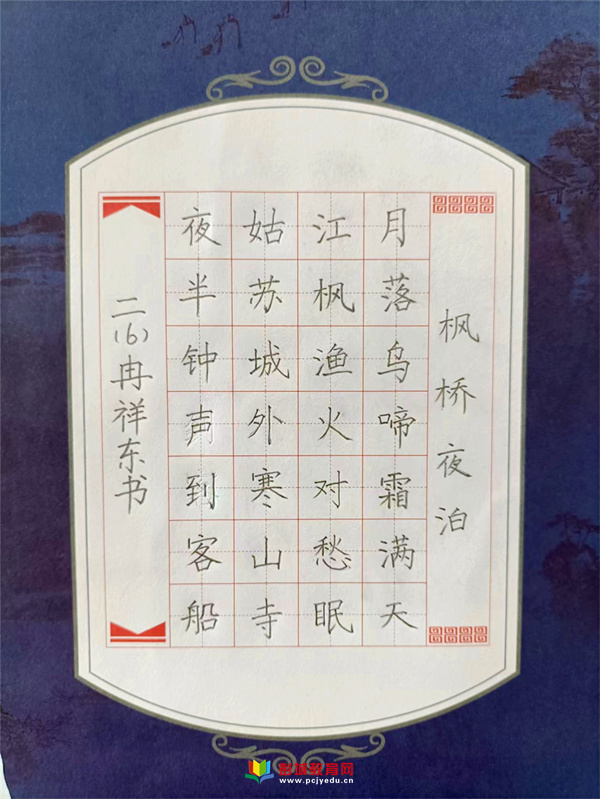 枫桥夜泊
月落乌啼霜满天
江枫渔火对愁眠
姑苏城外寒山寺
夜半钟声到客船
二(6)冉祥东书
彭城教育网
www.pcjyedu.cn